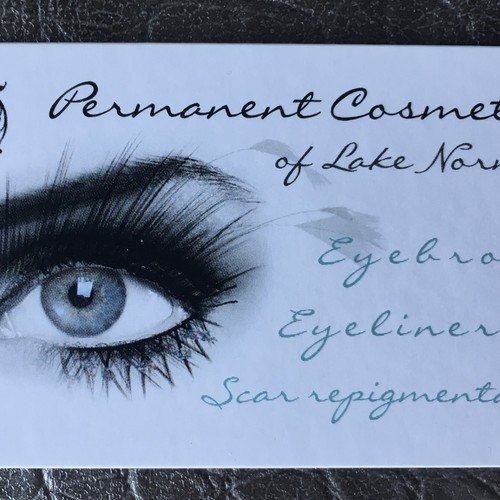 Permanent Cosmet
of Lake Norm
Eyebro
Eyeliner
Scar repigmenta